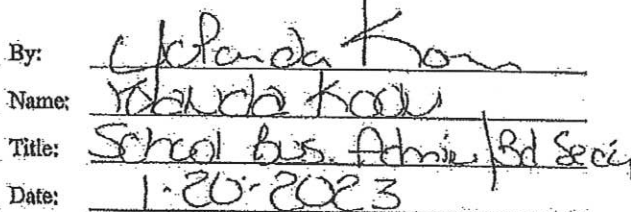 By: Yolanda Koon
Name: Yolanda Koon
Title: School Bus. Admin/Bd Secy
Date: 1-20-2023